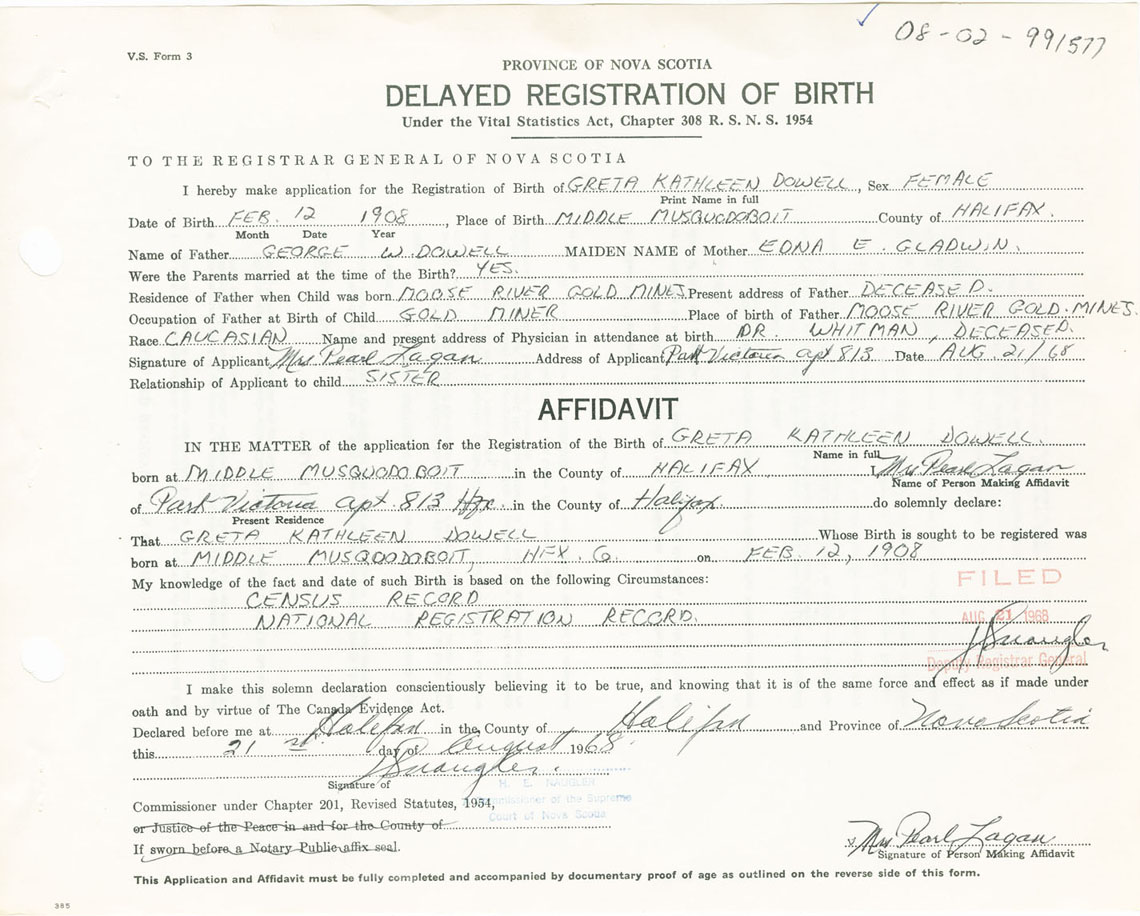 08-02-991577
V.S. Form 3
PROVINCE OF NOVA SCOTIA
DELAYED REGISTRATION OF BIRTH
Under the Vital Statistics Act, Chapter 308 R. S. N. S. 1954
TO THE REGISTRAR GENERAL OF NOVA SCOTIA
I hereby make application for the Registration of Birth of GRETA KATHLEEN DOWELL, Sex FEMALE
Print Name in full
Date of Birth FEB. 12 1908, Place of Birth MIDDLE MUSQUODOBOIT County of HALIFAX.
Month Date Year
Name of Father GEORGE W. DOWELL MAIDEN NAME of Mother EDNA E. GLADWIN.
Were the Parents married at the time of the Birth? YES.
Residence of Father when Child was born MOOSE RIVER GOLD MINES Present address of Father DECEASED.
Occupation of Father at Birth of Child GOLD MINER Place of birth of Father MOOSE RIVER GOLD MINES.
Race CAUCASIAN Name and present address of Physician in attendance at birth DR. WHITMAN, DECEASED.
Signature of Applicant Mrs Pearl Lagan Address of Applicant Park Victoria apt 813 Date AUG 21/68
Relationship of Applicant to child SISTER
AFFIDAVIT
IN THE MATTER of the application for the Registration of the Birth of GRETA KATHLEEN DOWELL.
Name in full
born at MIDDLE MUSQUODOBOIT in the County of HALIFAX Mrs Pearl Lagan
Name of Person Making Affidavit
of Park Victoria apt 813 Hfx. in the County of Halifax. do solemnly declare:
Present Residence
That GRETA KATHLEEN DOWELL Whose Birth is sought to be registered was
born at MIDDLE MUSQUODOBOIT, HFX. G. on FEB. 12, 1908
My knowledge of the fact and date of such Birth is based on the following Circumstances:
CENSUS RECORD
NATIONAL REGISTRATION RECORD.
FILED
AUG 21 1968
Deputy Registrar General
I make this solemn declaration conscientiously believing it to be true, and knowing that it is of the same force and effect as if made under
oath and by virtue of The Canada Evidence Act.
Declared before me at Halifax in the County of Halifax and Province of Nova Scotia
this 21st. day of August 1968.
Signature of
H. E. NAUGLER
Commissioner of the Supreme
Court of Nova Scotia
Commissioner under Chapter 201, Revised Statutes, 1954,
or Justice of the Peace in and for the County of
If sworn before a Notary Public affix seal.
x Mrs Pearl Lagan
Signature of Person Making Affidavit
This Application and Affidavit must be fully completed and accompanied by documentary proof of age as outlined on the reverse side of this form.
385